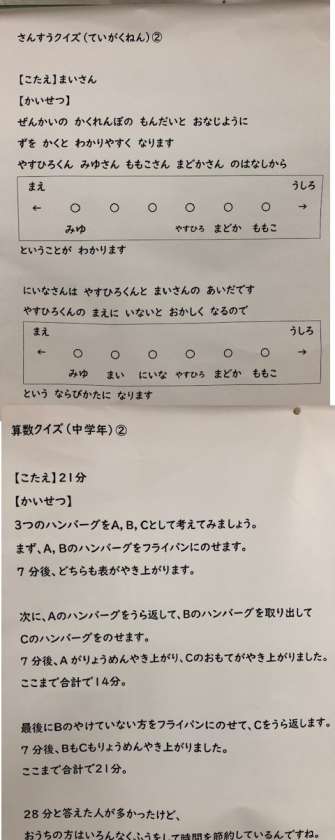 さんすうクイズ(ていがくねん)②
【こたえ】まいさん
【かいせつ】
ぜんかいの かくれんぼの もんだいと おなじように
ずを かくと わかりやすく なります
やすひろくん みゆさん ももこさん まどかさん のはなしから
まえ うしろ
← ○ ○ ○ ○ ○ ○ →
みゆ やすひろ まどか ももこ
ということが わかります
にいなさんは やすひろくんと まいさんの あいだです
やすひろくんの まえに いないと おかしく なるので
まえ うしろ
← ○ ○ ○ ○ ○ ○ →
みゆ まい にいな やすひろ まどか ももこ
という ならびかたに なります
算数クイズ(中学年)②
【こたえ】21分
【かいせつ】
3つのハンバーグをA, B, Cとして考えてみましょう。
まず、A, Bのハンバーグをフライパンにのせます。
7分後、どちらも表がやき上がります。
次に、Aのハンバーグをうら返して、Bのハンバーグを取り出して
Cのハンバーグをのせます。
7分後、Aがりょうめんやき上がり、Cのおもてがやき上がりました。
ここまで合計で14分。
最後にBのやけていない方をフライパンにのせて、Cをうら返します。
7分後、BもCもりょうめんやき上がりました。
ここまで合計で21分。
28分と答えた人が多かったけど、
おうちの方はいろんなくふうをして時間を節約しているんですね。